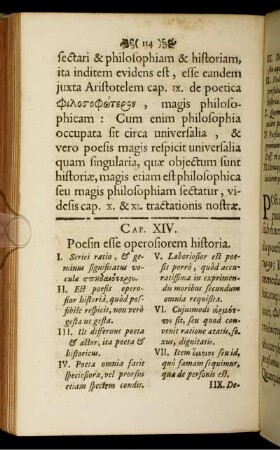 114
sectari & philosophiam & historiam,
ita inditem evidens est, esse eandem
juxta Aristotelem cap. IX. de poetica
φιλοσοφώτερον, magis philoso-
phicam: Cum enim philosophia
occupata sit circa universalia, &
vero poesis magis respicit universalia
quam singularia, quæ objectum sunt
historiæ, magis etiam est philosophica
seu magis philosophiam sectatur, vi-
desis cap. X. & XI. tractationis nostræ.
CAP. XIV.
Poesin esse operosiorem historia.
I. Seriei ratio, & ge-
minus significatus vo-
cula σπουδαιότερον.
II. Est poesis opero-
sior historiâ, quòd pos-
sibile respicit, non verò
gesta ut gesta.
III. Ut differunt poeta
& actor, ita poeta &
historicus.
IV. Poeta omnia facit
speciosiora, vel prorsus
etiam spectem condit.
V. Laboriosior est poe-
sis porrò, quòd accu-
ratissima in exprimen-
dis moribus secundum
omnia requisita.
VI. Cujusmodi
sit, seu quod conve-
nit ratione ætatis, se-
xus, dignitatis.
VII. Item ὅμοιον seu id,
quò famam sequimur,
quæ de personis est.
IIX. De-